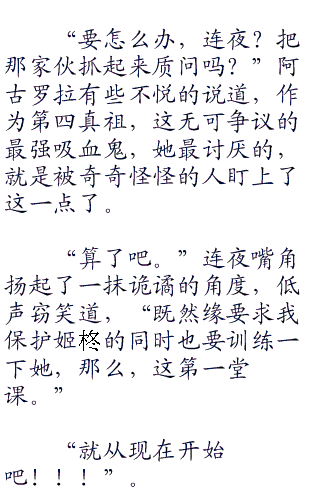 “要怎么办，连夜？把
那家伙抓起来质问吗？”阿
古罗拉有些不悦的说道，作
为第四真祖，这无可争议的
最强吸血鬼，她最讨厌的，
就是被奇奇怪怪的人盯上了
这一点了。
“算了吧。”连夜嘴角
扬起了一抹诡谲的角度，低
声窃笑道，“既然缘要求我
保护姬柊的同时也要训练一
下她，那么，这第一堂
课。”
“就从现在开始
吧！！！”。